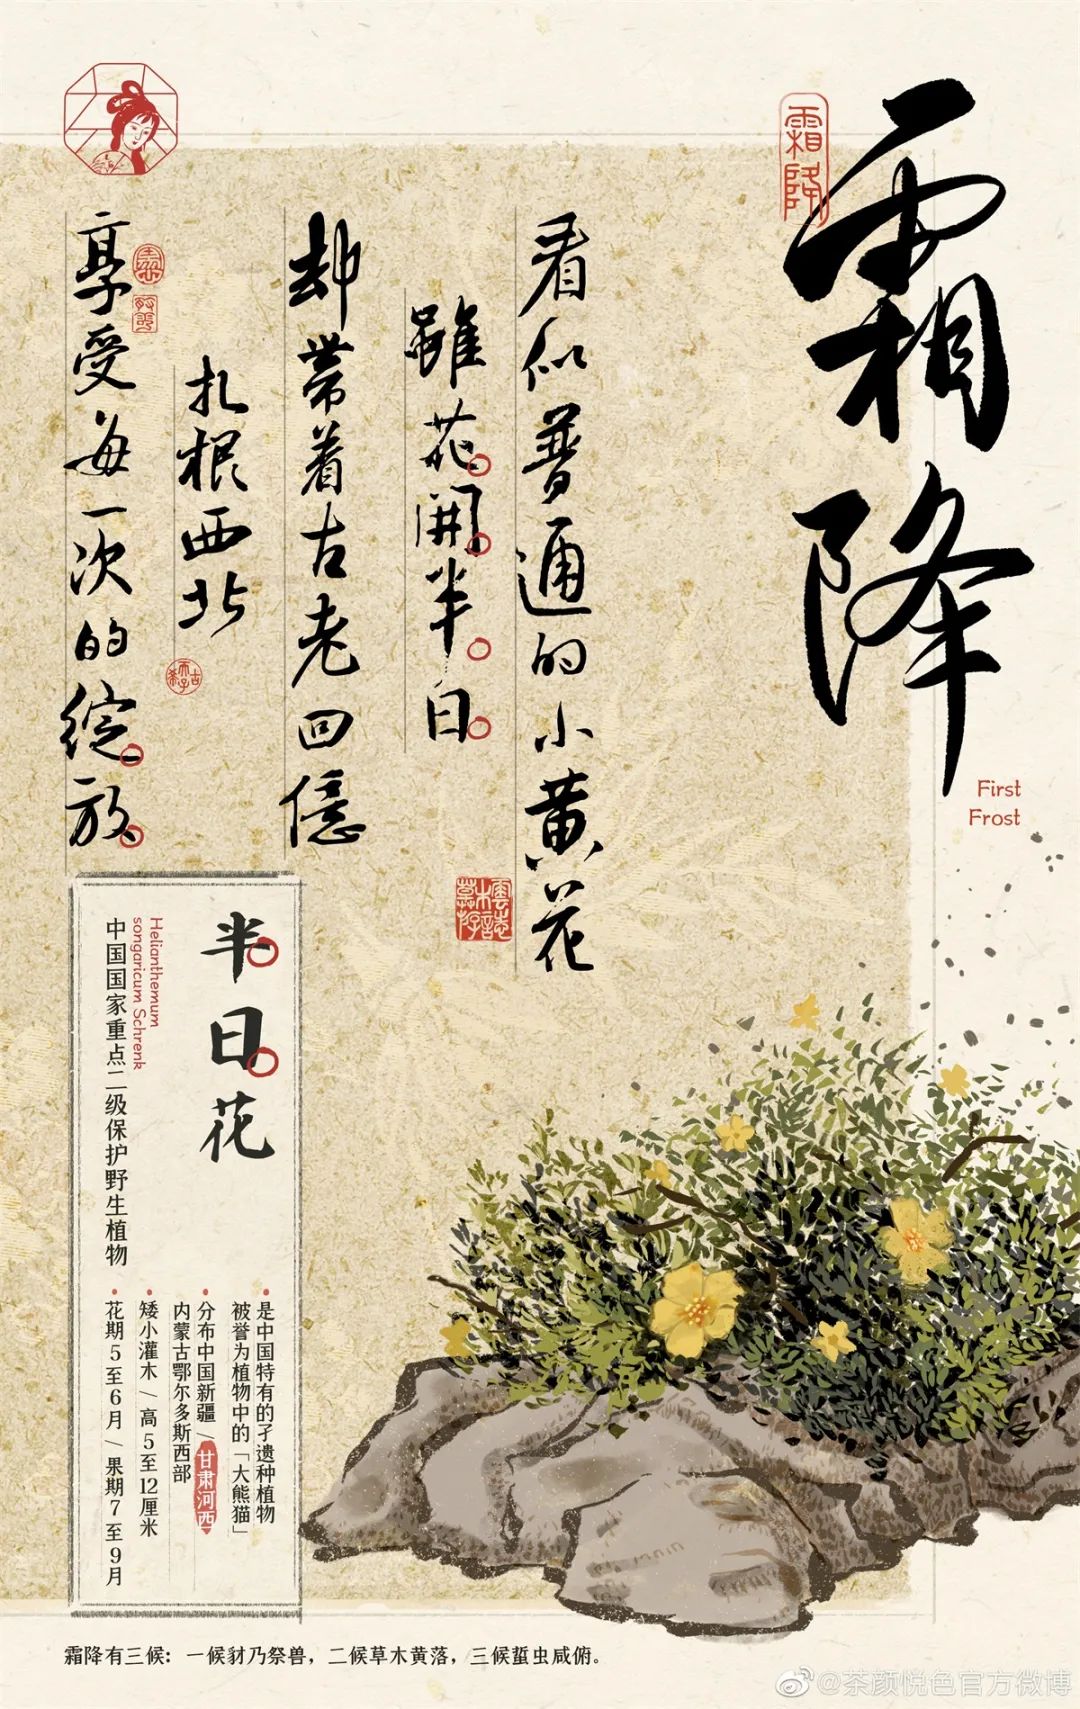 霜降
霜降
First
Frost
看似普通的小黄花
雖花開半日
却带着古老回憶
扎根西北
享受每一次的绽放
半日花
Helianthemum
songaricum Schrenk
中国国家重点二级保护野生植物
•是中国特有的孑遗种植物
被誉为植物中的「大熊猫」
•分布中国新疆/甘肃河西
内蒙古鄂尔多斯西部
•矮小灌木/高5至12厘米
•花期5至6月/果期7至9月
霜降有三候：一候豺乃祭兽，二候草木黄落，三候蜇虫咸俯。
@茶颜悦色官方微博